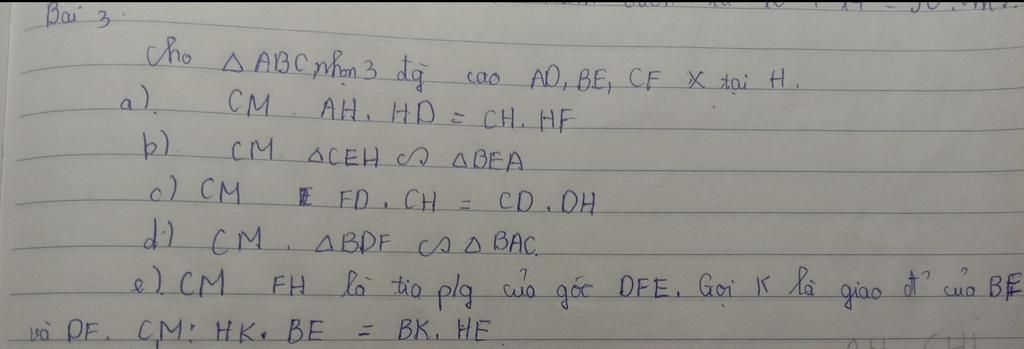 Bài 3.
Cho △ABC, nhọn 3 đg cao AD, BE, CF X tại H.
a). CM. AH. HD = CH. HF
b) CM. △CEH ∽ △BEA
c) CM FD. CH = CD. DH
d.) CM. △BDF ∽ △BAC.
e). CM FH là tia p/g của góc DFE. Gọi K là giao đ' của BE
và DF. CM: HK. BE = BK. HE